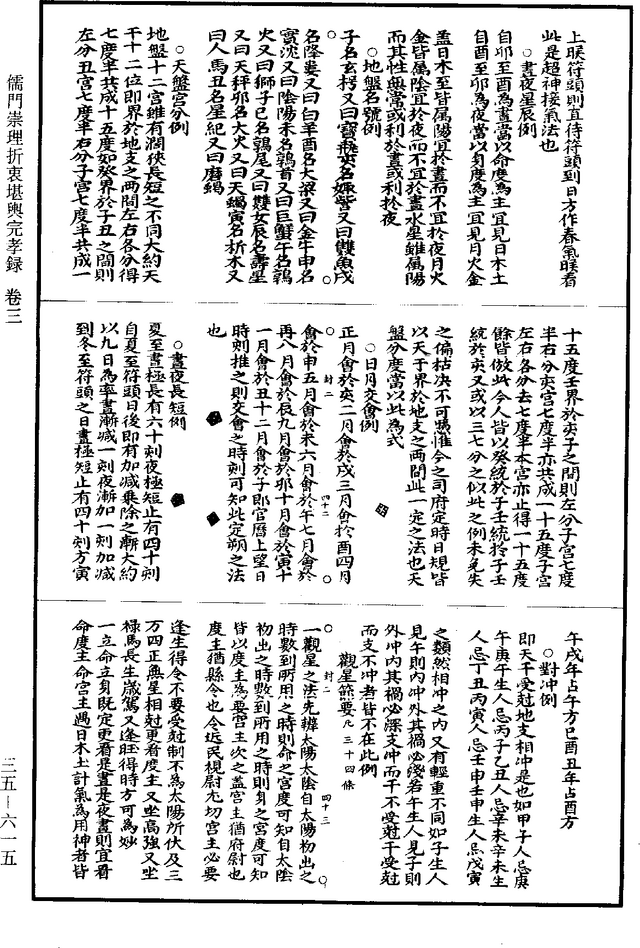 儒門崇理折衷堪輿完孝録 卷三
三五－六一五
上䏈符頭則直待符頭到日方作春氣䏈看
此是超神接氣法也
○晝夜星辰例
自卯至酉為晝當以命度為主宜見日木土
自酉至卯為夜當以身度為主宜見月火金
蓋日木至皆属陽宜於晝而不宜於夜月火
金皆属陰宜於夜而不宜於晝水星雖属陽
而其性無常或利於晝或利於夜
○地盤名號例
子名玄枵又曰寳瓶亥名娵訾又曰雙魚戌
名降婁又曰白羊酉名大梁又曰金牛申名
實沈又曰陰陽未名鶉首又曰巨蟹午名鶉
火又曰獅子巳名鶉尾又曰雙女辰名壽星
又曰天秤卯名大火又曰天蝎寅名析木又
曰人馬丑名星紀又曰磨蝎
○天盤宫分例
地盤十二宫雖有濶狹長短之不同大約天
干十二位即界於地支之两間左右各分得
七度半共成十五度如癸界於子丑之間則
左分丑宫七度半右分子宫七度半共成一
十五度壬界於亥子之間則左分子宫七度
半右分亥宫七度半亦共成一十五度子宫
左右各分去七度半本宫亦止得一十五度
餘皆倣此今人皆以癸統於子壬統於子壬
統於亥又或以三七分之似此之例未免失
之偏枯决不可慿惟今之司府定時日規皆
以天干界於地支之两間此一定之法也天
盤分度當以此為式
○日月交會例
正月會於亥二月會於戌三月會於酉四月
會於申五月會於未六月會於午七月會於
再八月會於辰九月會於卯十月會於寅十
一月會於丑十二月會於子即官曆上望日
時刻推之則交會之時刻可知此定朔之法
也
○晝夜長短例
夏至晝極長有六十刻夜極短止有四十刻
自夏至符頭日後即有加减乗除之漸大約
以九日為率晝漸减一刻夜漸加一刻加减
到冬至符頭之日晝極短止有四十刻方寅
午戌年占午方巳酉丑年占酉方
○對冲例
即天干受尅地支相冲是也如甲子人忌庚
午庚午生人忌丙子乙丑人忌辛未辛未生
人忌丁丑丙寅人忌壬申壬申生人忌戊寅
之類然相冲之内又有輕重不同如子生人
見午則内冲外其禍必淺若午生人見子則
外冲内其禍必深支冲而干不受尅干受尅
而支不冲者皆不在此例
觀星節要凡三十四條
一觀星之法先辨太陽太陰自太陽初出之
時數到所用之時則命之宫度可知自太陰
初出之時數到所用之時則身之宫度可知
皆以度主為要宫主次之盖宫主猶府尉也
度主猶縣令也令近民視尉尤切宫主必要
逢生得令不要受尅制不為太陽所伏及三
方四正無星相尅更看度主又坐高強又坐
禄馬長生歲駕又逢旺得時方可為妙
一立命立身既定更看是晝是夜晝則宜看
命度主命宫主遇日木土計氣為用神者皆
封二
四十二
封二
四十三